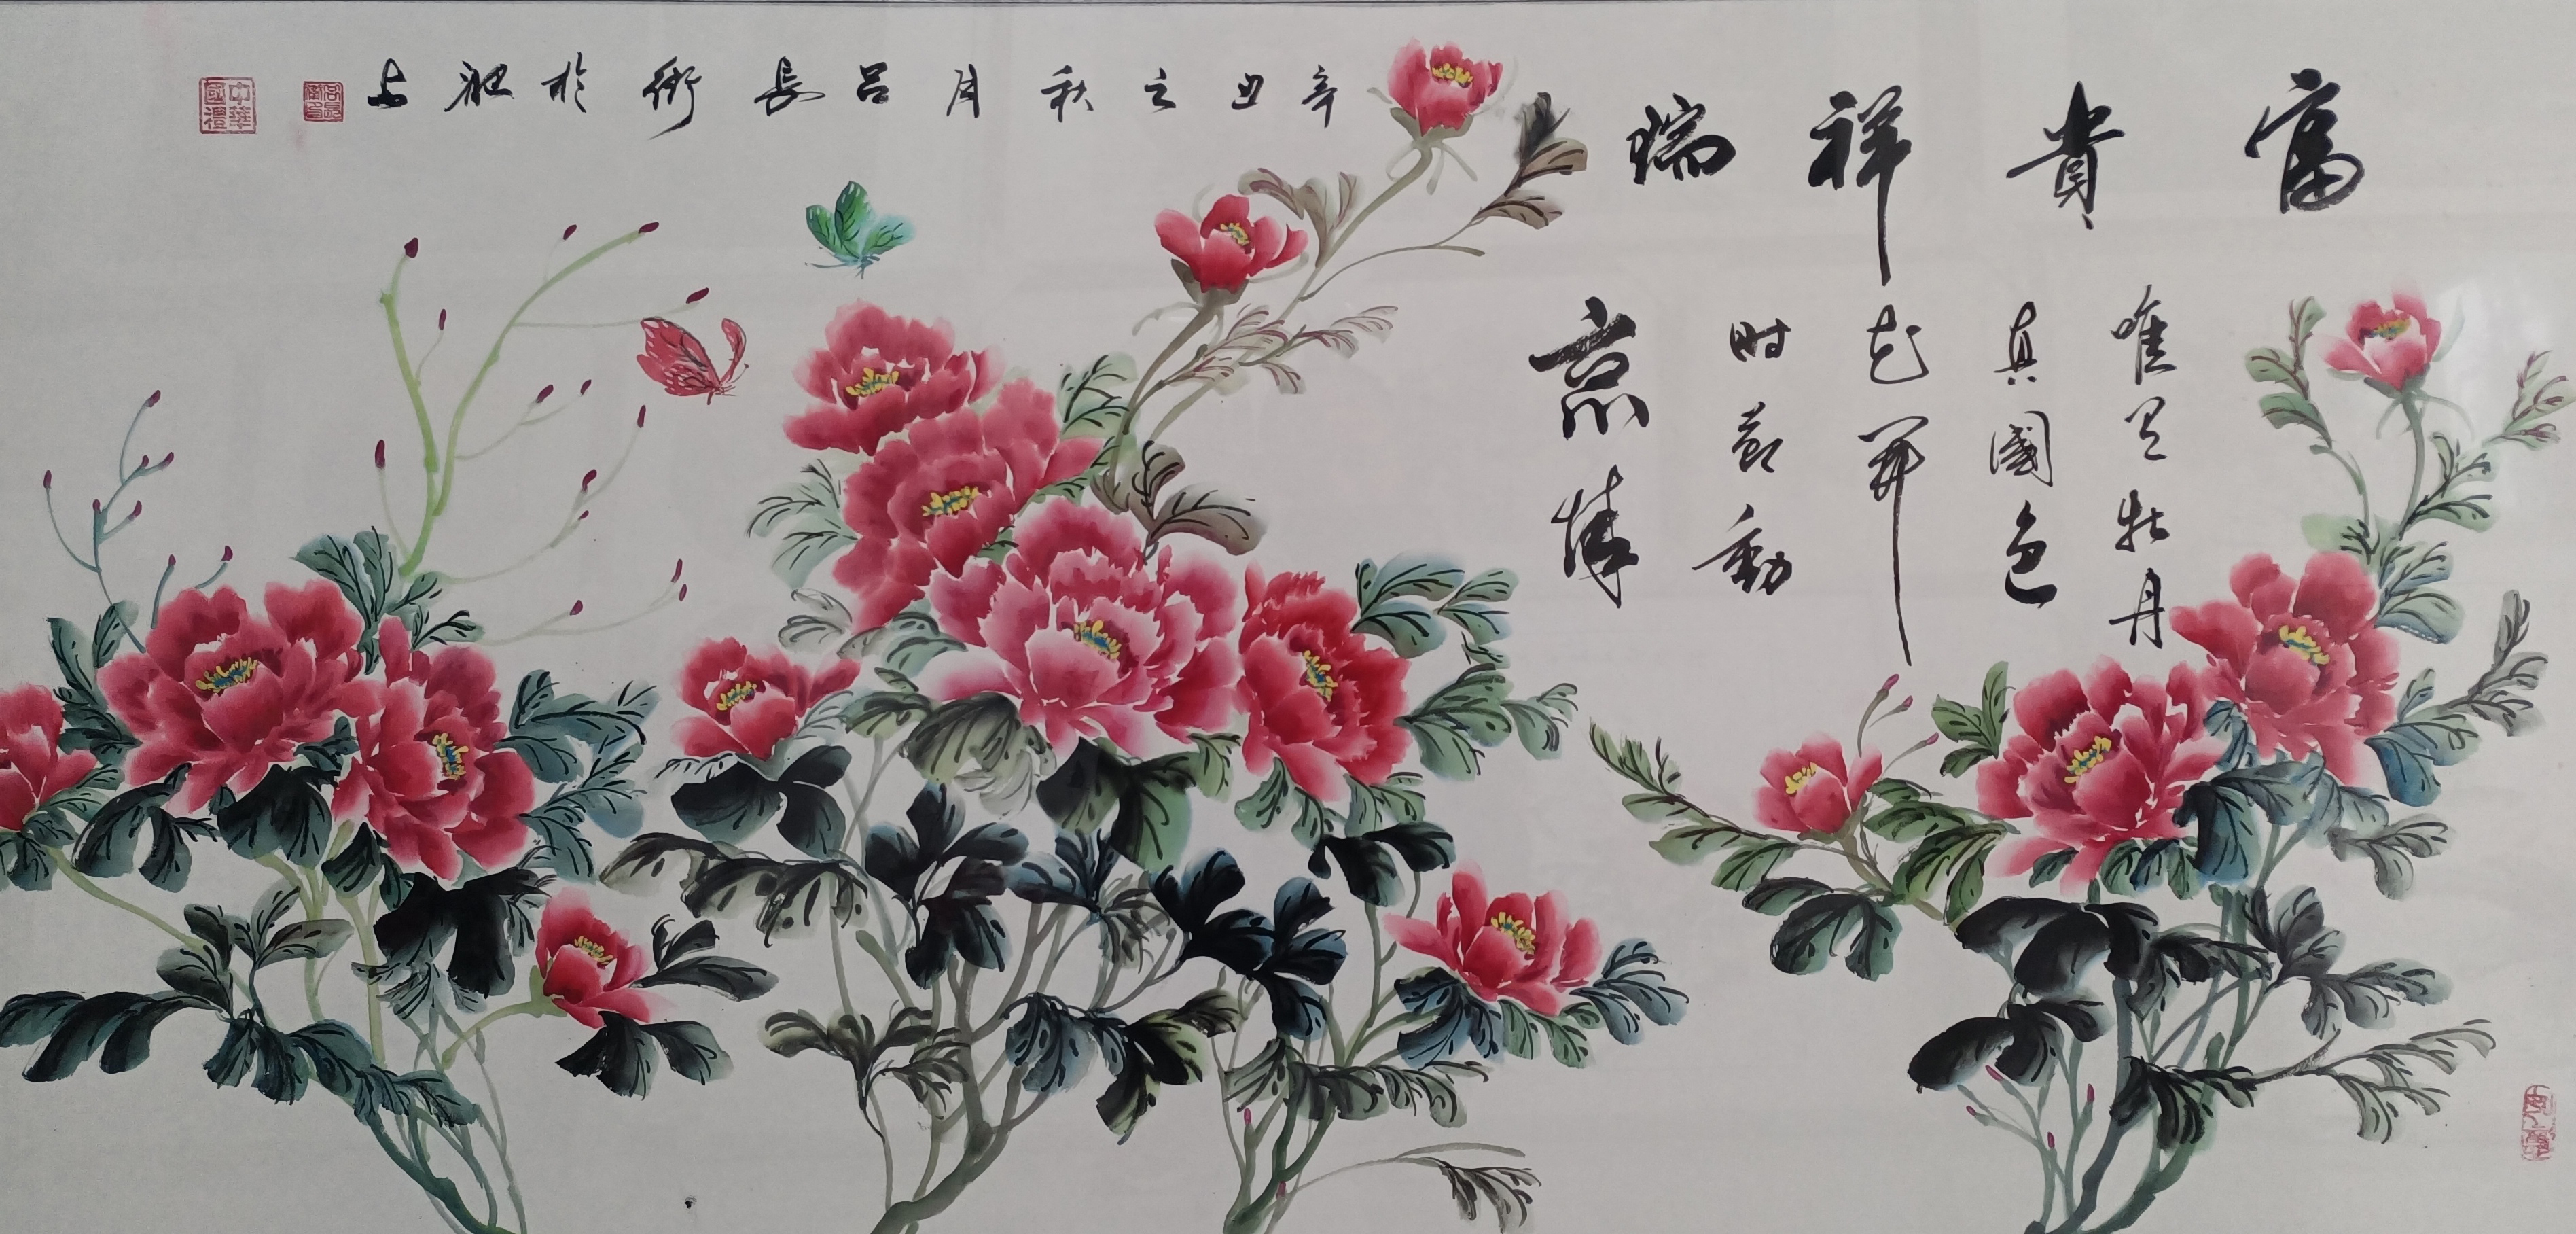 富貴祥瑞
唯有牡丹
真國色
花開
時節動
京城
辛丑之秋月呂長衛於淝上
中華國禮